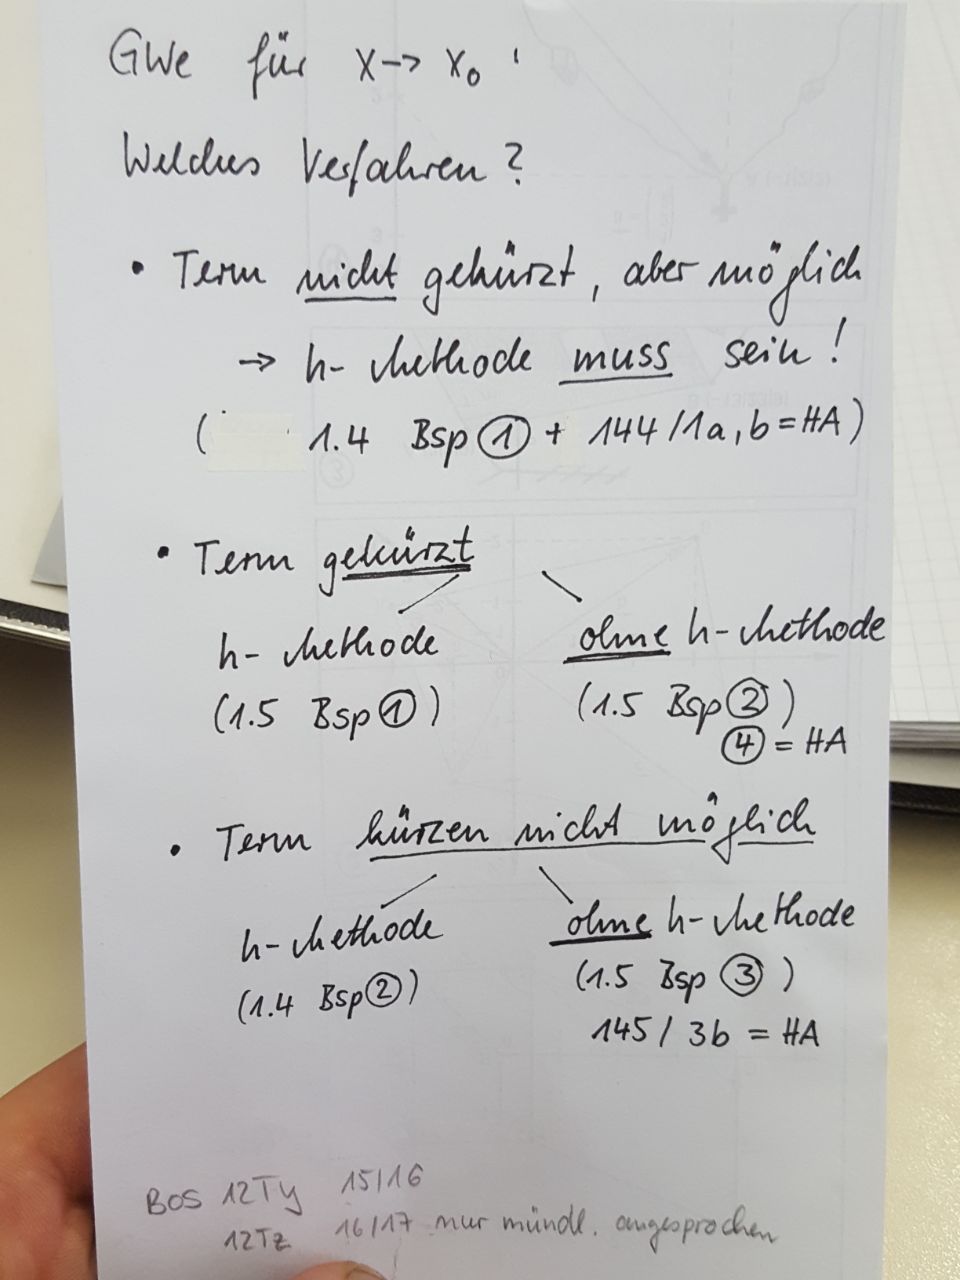 GWe für x→ x₀ '
Welches Verfahren?
• Term nicht gekürzt, aber möglich
→ h-Methode muss sein!
( 1.4 Bsp ① + 144/1a,b=HA)
• Term gekürzt
h-Methode ohne h-Methode
(1.5 Bsp ①) (1.5 Bsp ②)
④ = HA
• Term kürzen nicht möglich
h-Methode ohne h-Methode
(1.4 Bsp ②) (1.5 Bsp ③)
145/3b = HA
BOS 12Ty 15/16
12Tz 16/17 nur mündl. angesprochen